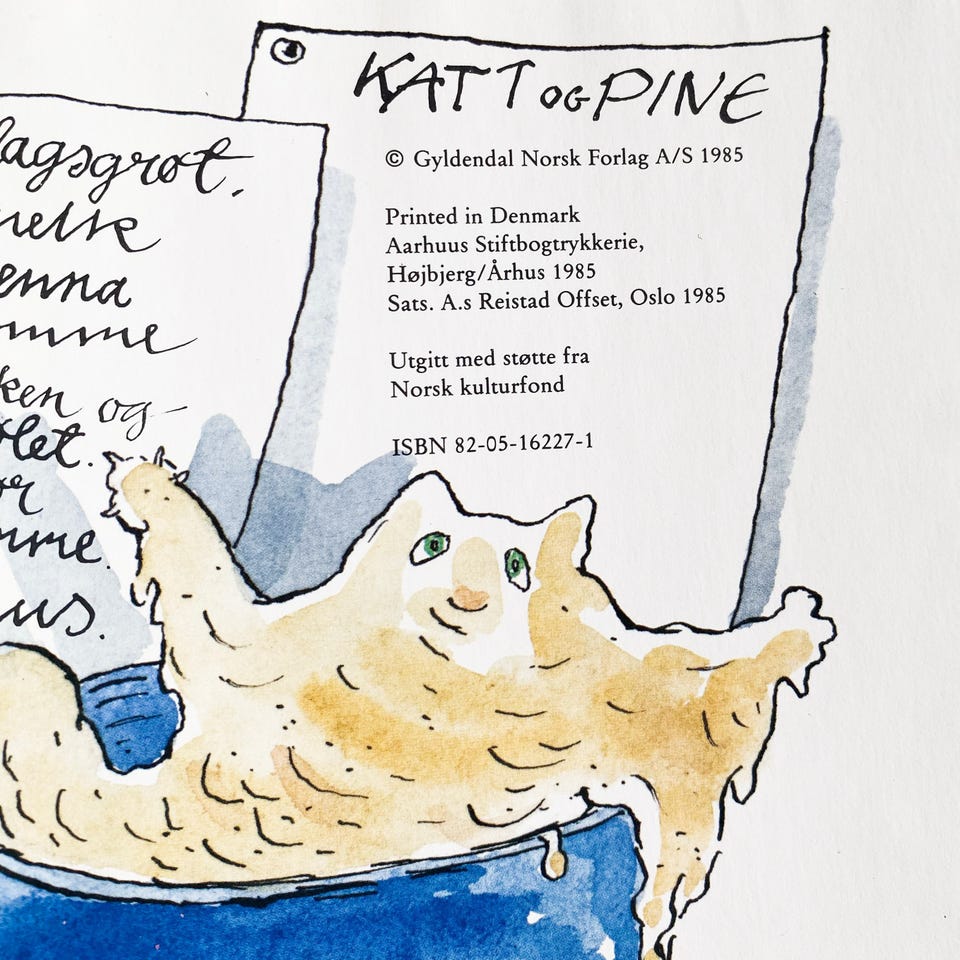 lagsgrøt.
enna
mme
ken og-
let.
or
mme.
us.
KATT OG PINE
© Gyldendal Norsk Forlag A/S 1985
Printed in Denmark
Aarhuus Stiftbogtrykkerie,
Højbjerg/Århus 1985
Sats. A.s Reistad Offset, Oslo 1985
Utgitt med støtte fra
Norsk kulturfond
ISBN 82-05-16227-1